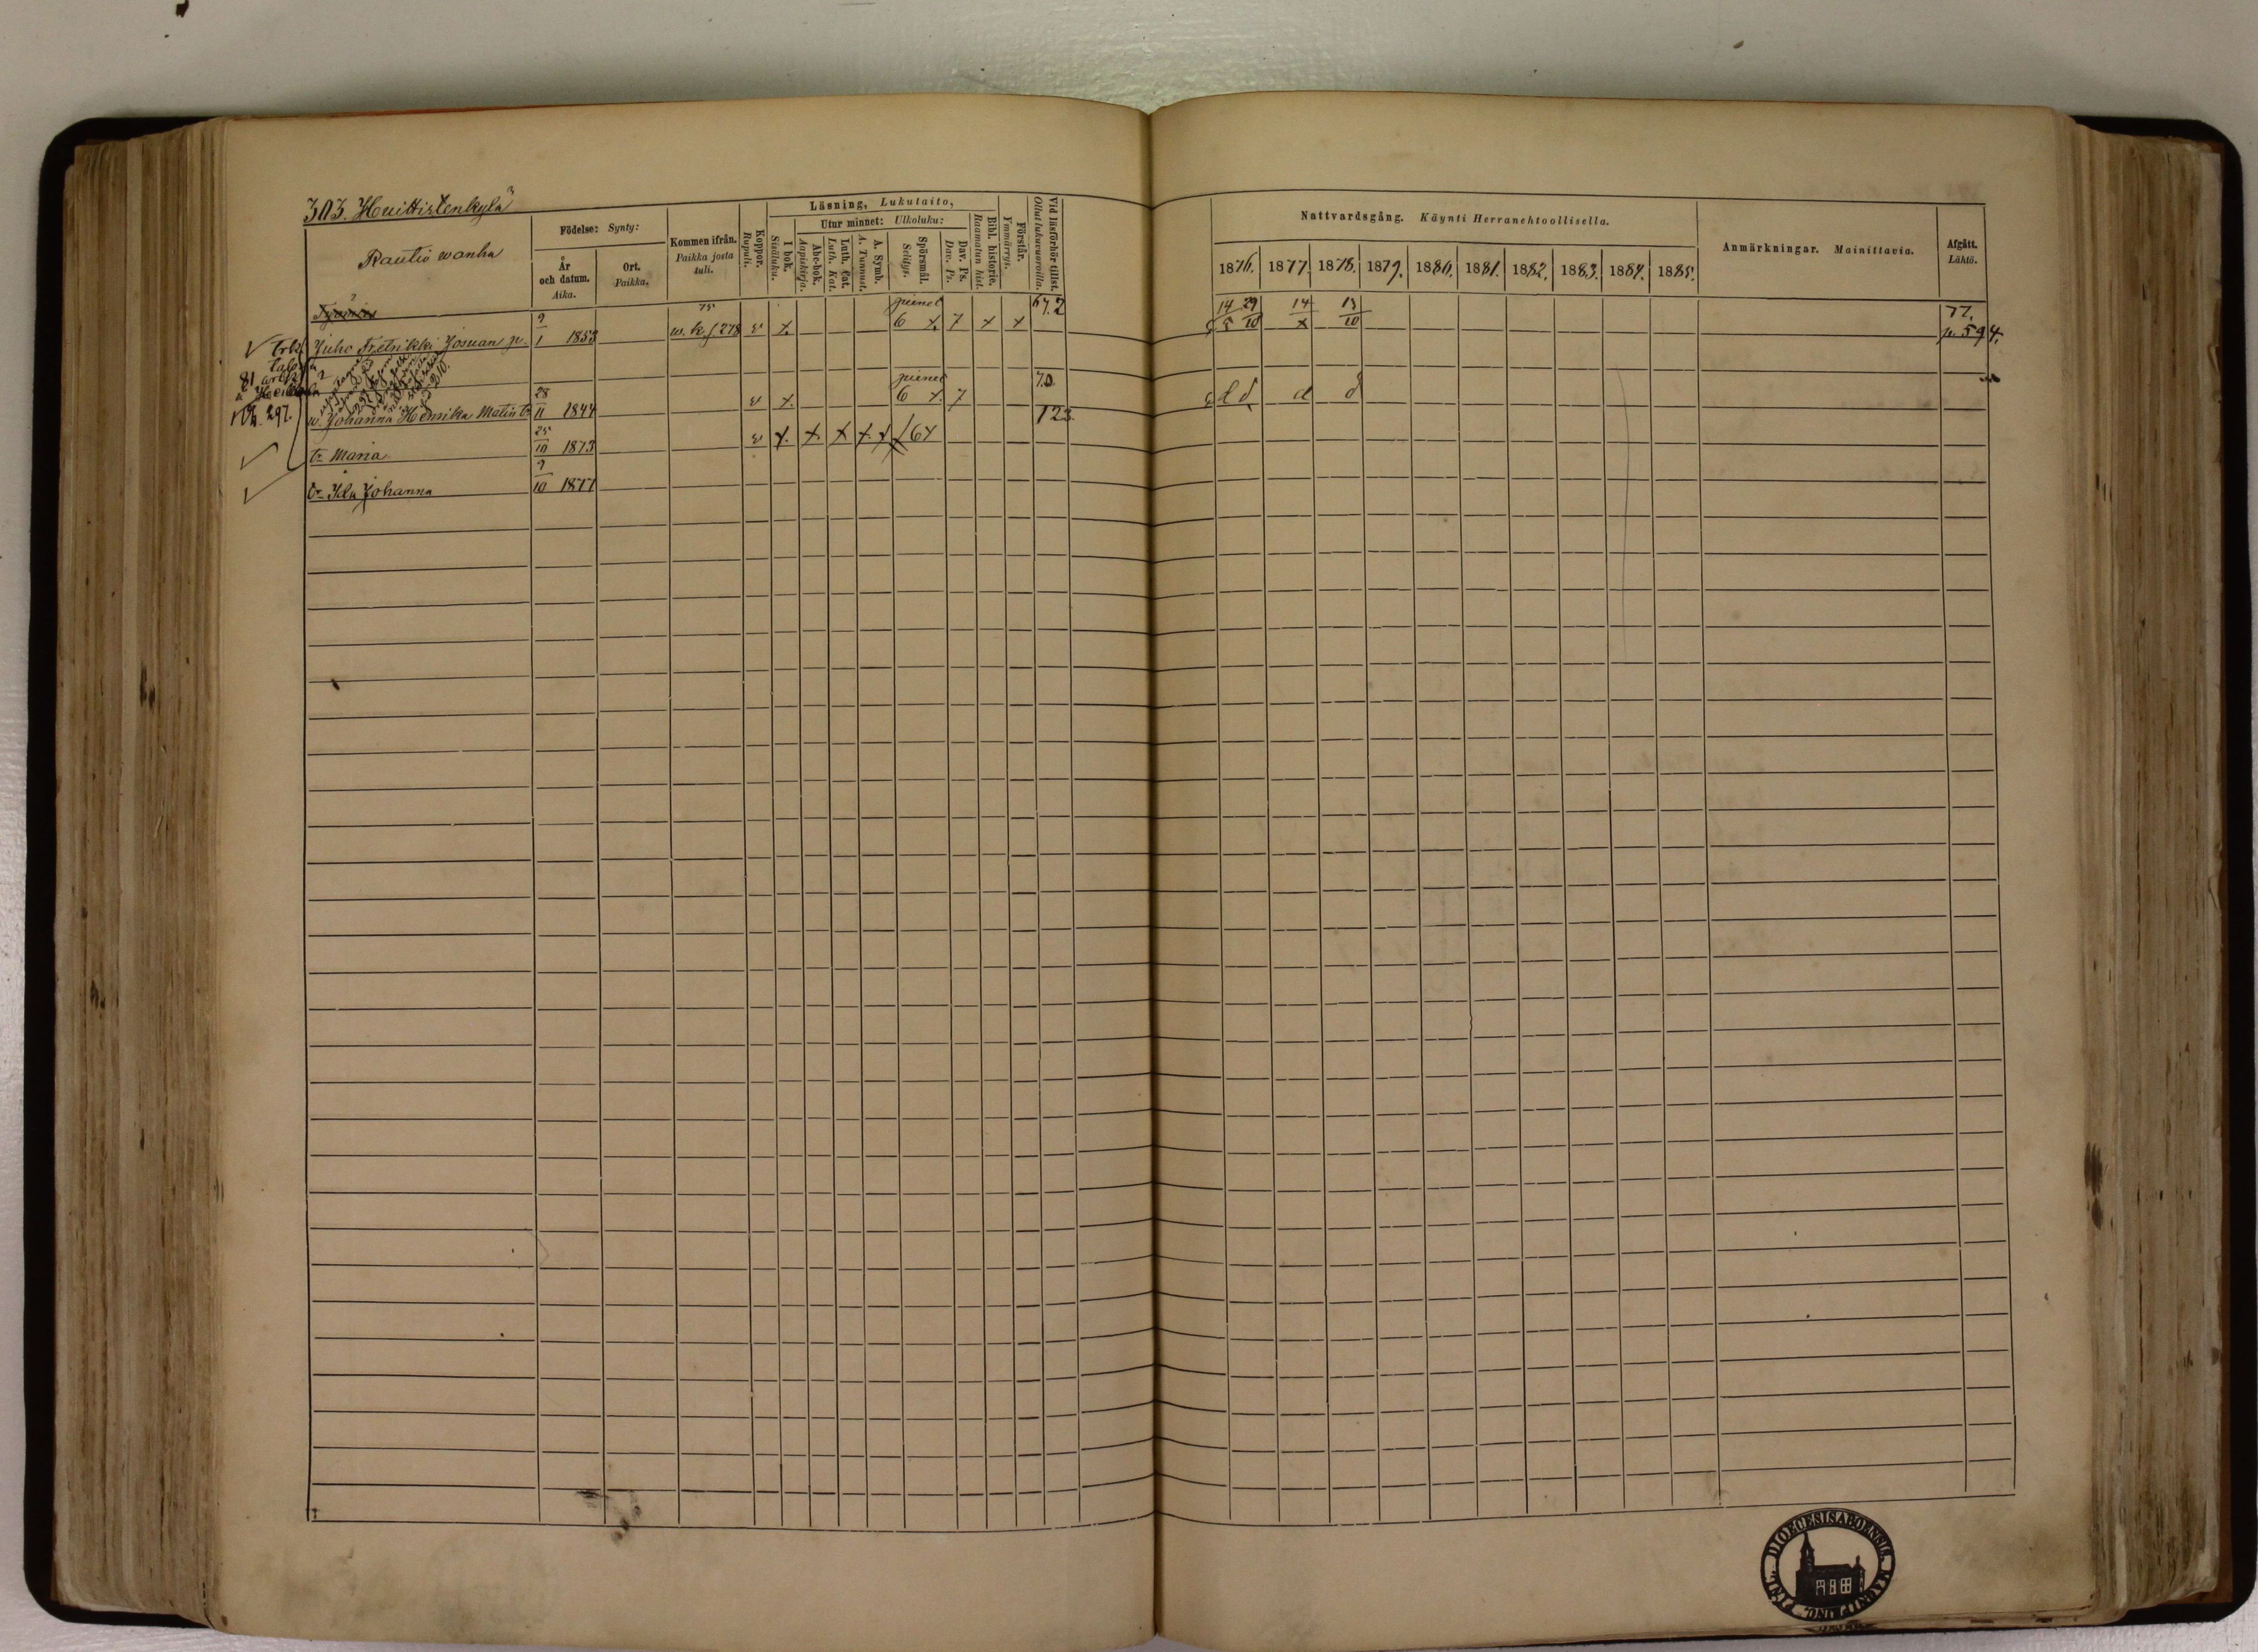 303. Huittistenkylä
Rautio wanha
Födelse: Synty:
År och datum. Aika.
Ort. Paikka.
Kommen ifrån. Paikka josta tuli.
Koppor. Rupuli.
Läsning, Lukutaito,
I bok. Sisäluku.
Utur minnet: Ulkoluku:
Abc-bok. Aapiskirja.
Luth. Cat. Luth. Kat.
A. Symb. A. Tunnust.
Spörsmål. Selitys.
Dav. Ps. Dav. Ps.
Bibl. historie. Raamatun hist.
Förstår. Ymmärrys.
Vid läsförhör tillst. Ollut lukuvuoroilla.
Nattvardsgång. Käynti Herranehtoollisella.
1876. 1877. 1878. 1879. 1880. 1881. 1882. 1883. 1884. 1885.
Anmärkningar. Mainittavia.
Afgått. Lähtö.
Juho Fretrikki Josuan p. 9/1 1853 75 w. k. f. 278 w x pienet 6 x 7 x x 67.2 14/5 29/10 14/x 13/10 77. p. 594.
81
297.
w. Johanna Henrika Matin t. 28/11 1844 w x pienet 6 x 7 70 123
tr Maria 25/10 1873 w x x x x x 64
tr Ida Johanna 9/10 1877
DIOECESIS ABOENSIS